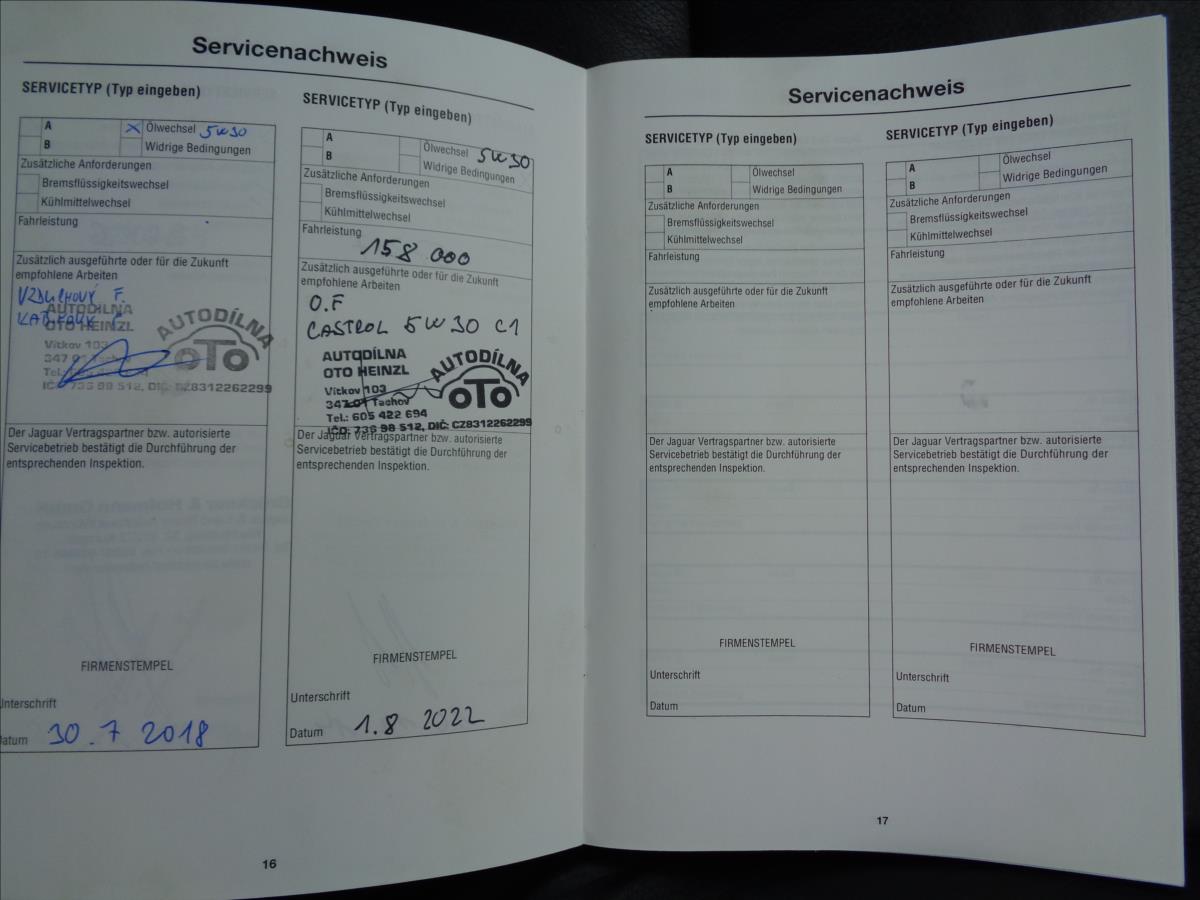 Servicenachweis
SERVICETYP (Typ eingeben)
A
Ölwechsel 5W30
B
Widrige Bedingungen
Zusätzliche Anforderungen
Bremsflüssigkeitswechsel
Kühlmittelwechsel
Fahrleistung
Zusätzlich ausgeführte oder für die Zukunft
empfohlene Arbeiten
VZDUCHOVÝ F.
AUTODÍLNA
OTO HEINZL
Vítkov 103
347 01 Tachov
Tel.:
IČO: 736 98 512, DIČ: CZ8312262299
AUTODÍLNA
OTO
Der Jaguar Vertragspartner bzw. autorisierte
Servicebetrieb bestätigt die Durchführung der
entsprechenden Inspektion.
FIRMENSTEMPEL
Unterschrift
Datum 30.7 2018
SERVICETYP (Typ eingeben)
A
Ölwechsel 5W30
B
Widrige Bedingungen
Zusätzliche Anforderungen
Bremsflüssigkeitswechsel
Kühlmittelwechsel
Fahrleistung
158 000
Zusätzlich ausgeführte oder für die Zukunft
empfohlene Arbeiten
O.F
CASTROL 5W30 C1
AUTODÍLNA
OTO HEINZL
Vítkov 103
347 01 Tachov
Tel.: 605 422 694
IČO: 736 98 512, DIČ: CZ8312262299
AUTODÍLNA
OTO
Der Jaguar Vertragspartner bzw. autorisierte
Servicebetrieb bestätigt die Durchführung der
entsprechenden Inspektion.
FIRMENSTEMPEL
Unterschrift
Datum 1.8 2022
16
Servicenachweis
SERVICETYP (Typ eingeben)
A
Ölwechsel
B
Widrige Bedingungen
Zusätzliche Anforderungen
Bremsflüssigkeitswechsel
Kühlmittelwechsel
Fahrleistung
Zusätzlich ausgeführte oder für die Zukunft
empfohlene Arbeiten
Der Jaguar Vertragspartner bzw. autorisierte
Servicebetrieb bestätigt die Durchführung der
entsprechenden Inspektion.
FIRMENSTEMPEL
Unterschrift
Datum
SERVICETYP (Typ eingeben)
A
Ölwechsel
B
Widrige Bedingungen
Zusätzliche Anforderungen
Bremsflüssigkeitswechsel
Kühlmittelwechsel
Fahrleistung
Zusätzlich ausgeführte oder für die Zukunft
empfohlene Arbeiten
Der Jaguar Vertragspartner bzw. autorisierte
Servicebetrieb bestätigt die Durchführung der
entsprechenden Inspektion.
FIRMENSTEMPEL
Unterschrift
Datum
17